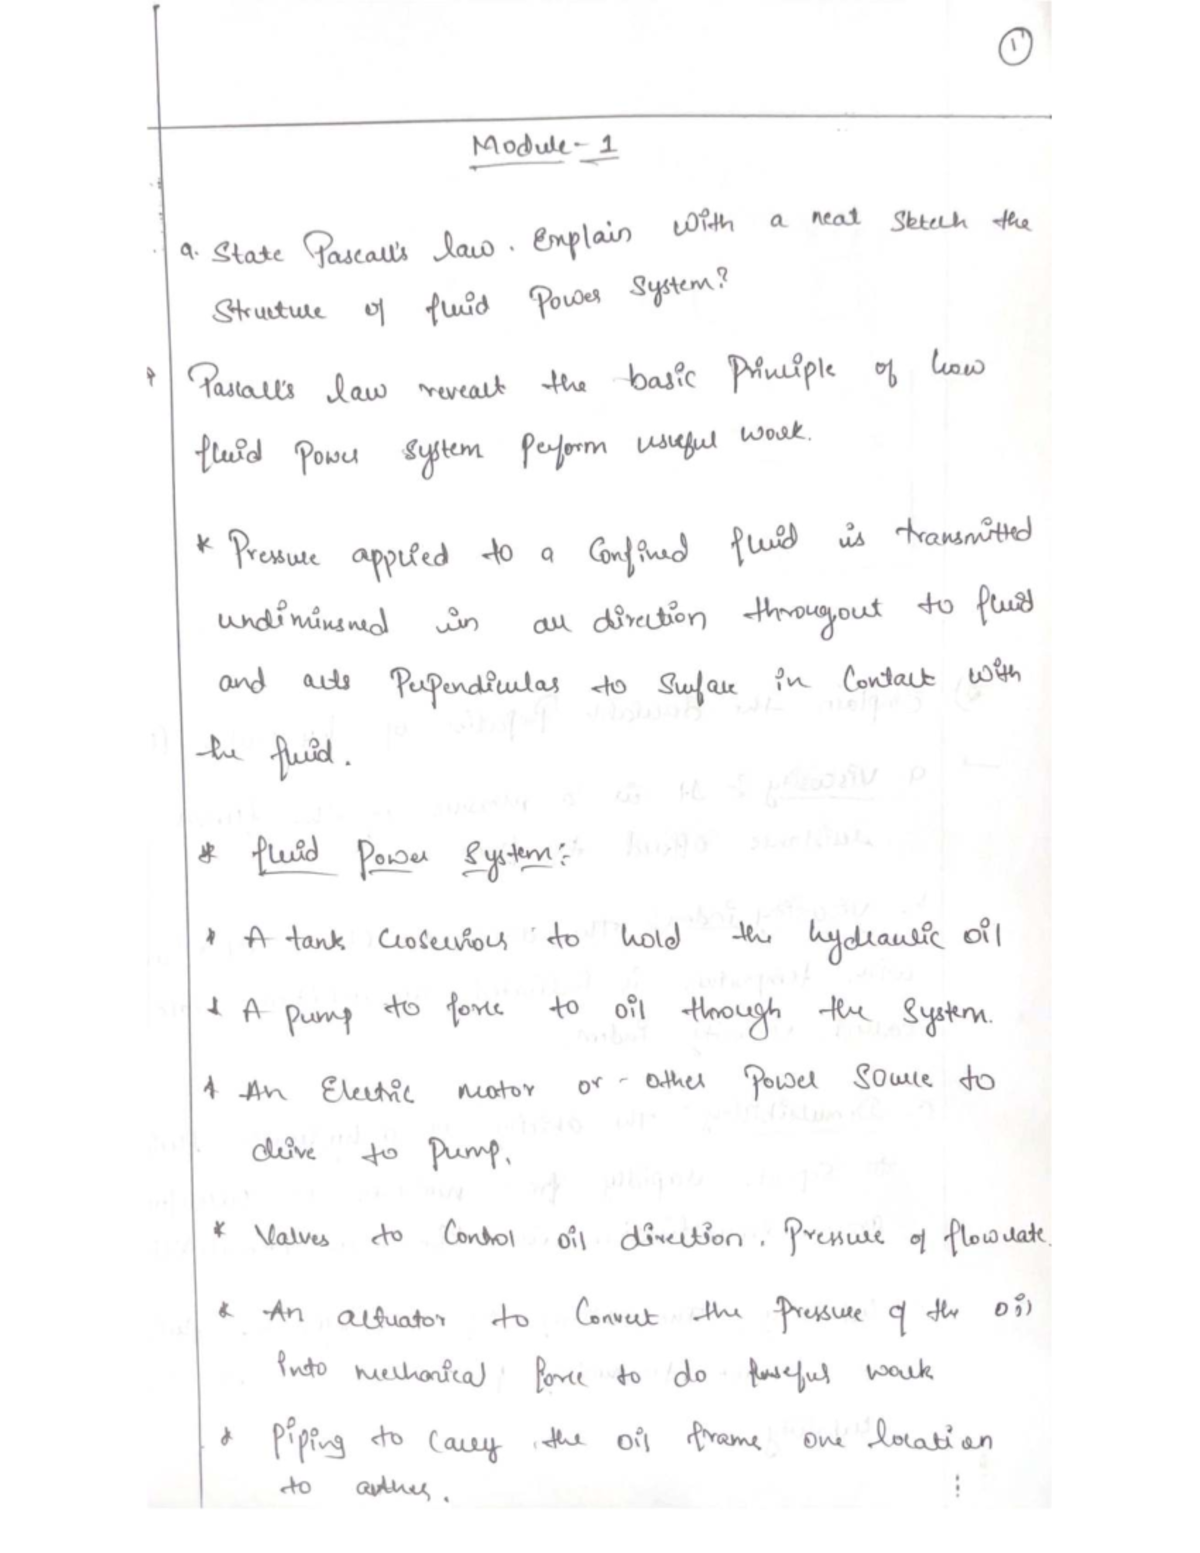 1
Module - 1
a. State Pascall's law. Explain with a neat Sketch the
Structure of fluid Power System?
Pascall's law revealt the basic Principle of how
fluid Power system Perform useful work.
* Pressure applied to a Confined fluid is transmitted
undiminsned in all direction througout to fluid
and acts Perpendicular to Surface in Contact with
the fluid.
* fluid Power System:-
* A tank to hold the hydraulic oil
* A pump to force to oil through the System.
* An Electric motor or - other Power Source to
drive to Pump.
* Valves to Control oil direction. Pressure of flow rate.
* An actuator to Convert the Pressure of the oil
into mechanical force to do work
* Piping to Carry the oil frame one location
to